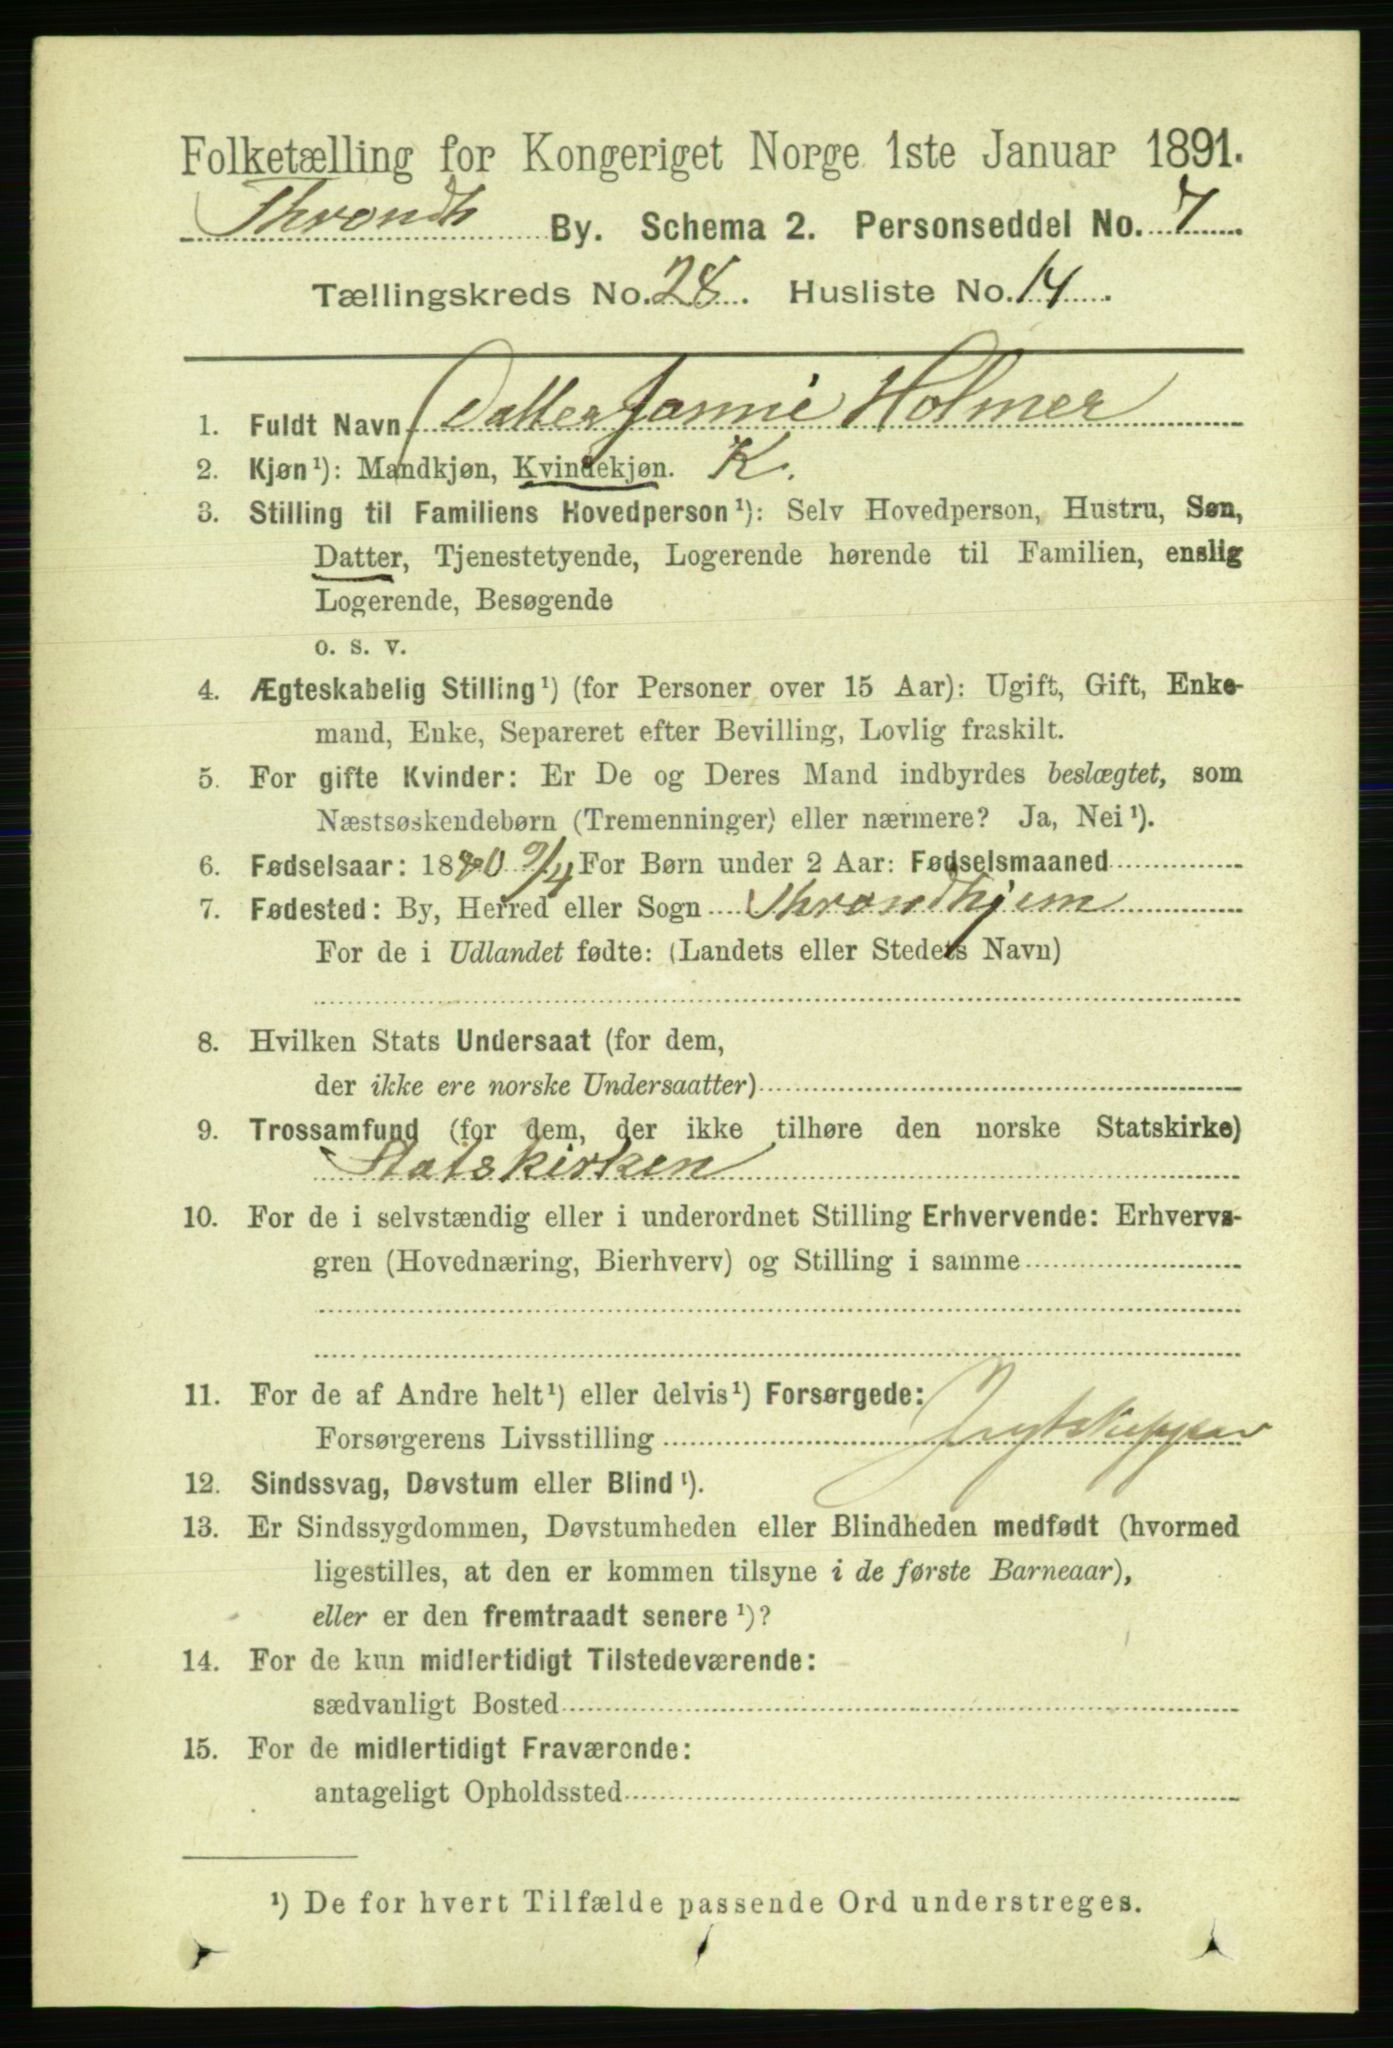 Folketælling for Kongeriget Norge 1ste Januar 1891.
Throndh By. Schema 2. Personseddel No. 7
Tællingskreds No. 28. Husliste No. 14.
1. Fuldt Navn Datter Jannie Holmer
2. Kjøn¹): Mandkjøn, Kvindekjøn. K.
3. Stilling til Familiens Hovedperson¹): Selv Hovedperson, Hustru, Søn,
Datter, Tjenestetyende, Logerende hørende til Familien, enslig
Logerende, Besøgende
o. s. v.
4. Ægteskabelig Stilling¹) (for Personer over 15 Aar): Ugift, Gift, Enke-
mand, Enke, Separeret efter Bevilling, Lovlig fraskilt.
5. For gifte Kvinder: Er De og Deres Mand indbyrdes beslægtet, som
Næstsøskendebørn (Tremenninger) eller nærmere? Ja, Nei¹).
6. Fødselsaar: 1880 9/4 For Børn under 2 Aar: Fødselsmaaned
7. Fødested: By, Herred eller Sogn Throndhjem
For de i Udlandet fødte: (Landets eller Stedets Navn)
8. Hvilken Stats Undersaat (for dem,
der ikke ere norske Undersaatter)
9. Trossamfund (for dem, der ikke tilhøre den norske Statskirke)
Statskirken
10. For de i selvstændig eller i underordnet Stilling Erhvervende: Erhvervs-
gren (Hovednæring, Bierhverv) og Stilling i samme
11. For de af Andre helt¹) eller delvis¹) Forsørgede:
Forsørgerens Livsstilling Jægtskipper
12. Sindssvag, Døvstum eller Blind¹).
13. Er Sindssygdommen, Døvstumheden eller Blindheden medfødt (hvormed
ligestilles, at den er kommen tilsyne i de første Barneaar),
eller er den fremtraadt senere¹)?
14. For de kun midlertidigt Tilstedeværende:
sædvanligt Bosted
15. For de midlertidigt Fraværende:
antageligt Opholdssted
¹) De for hvert Tilfælde passende Ord understreges.